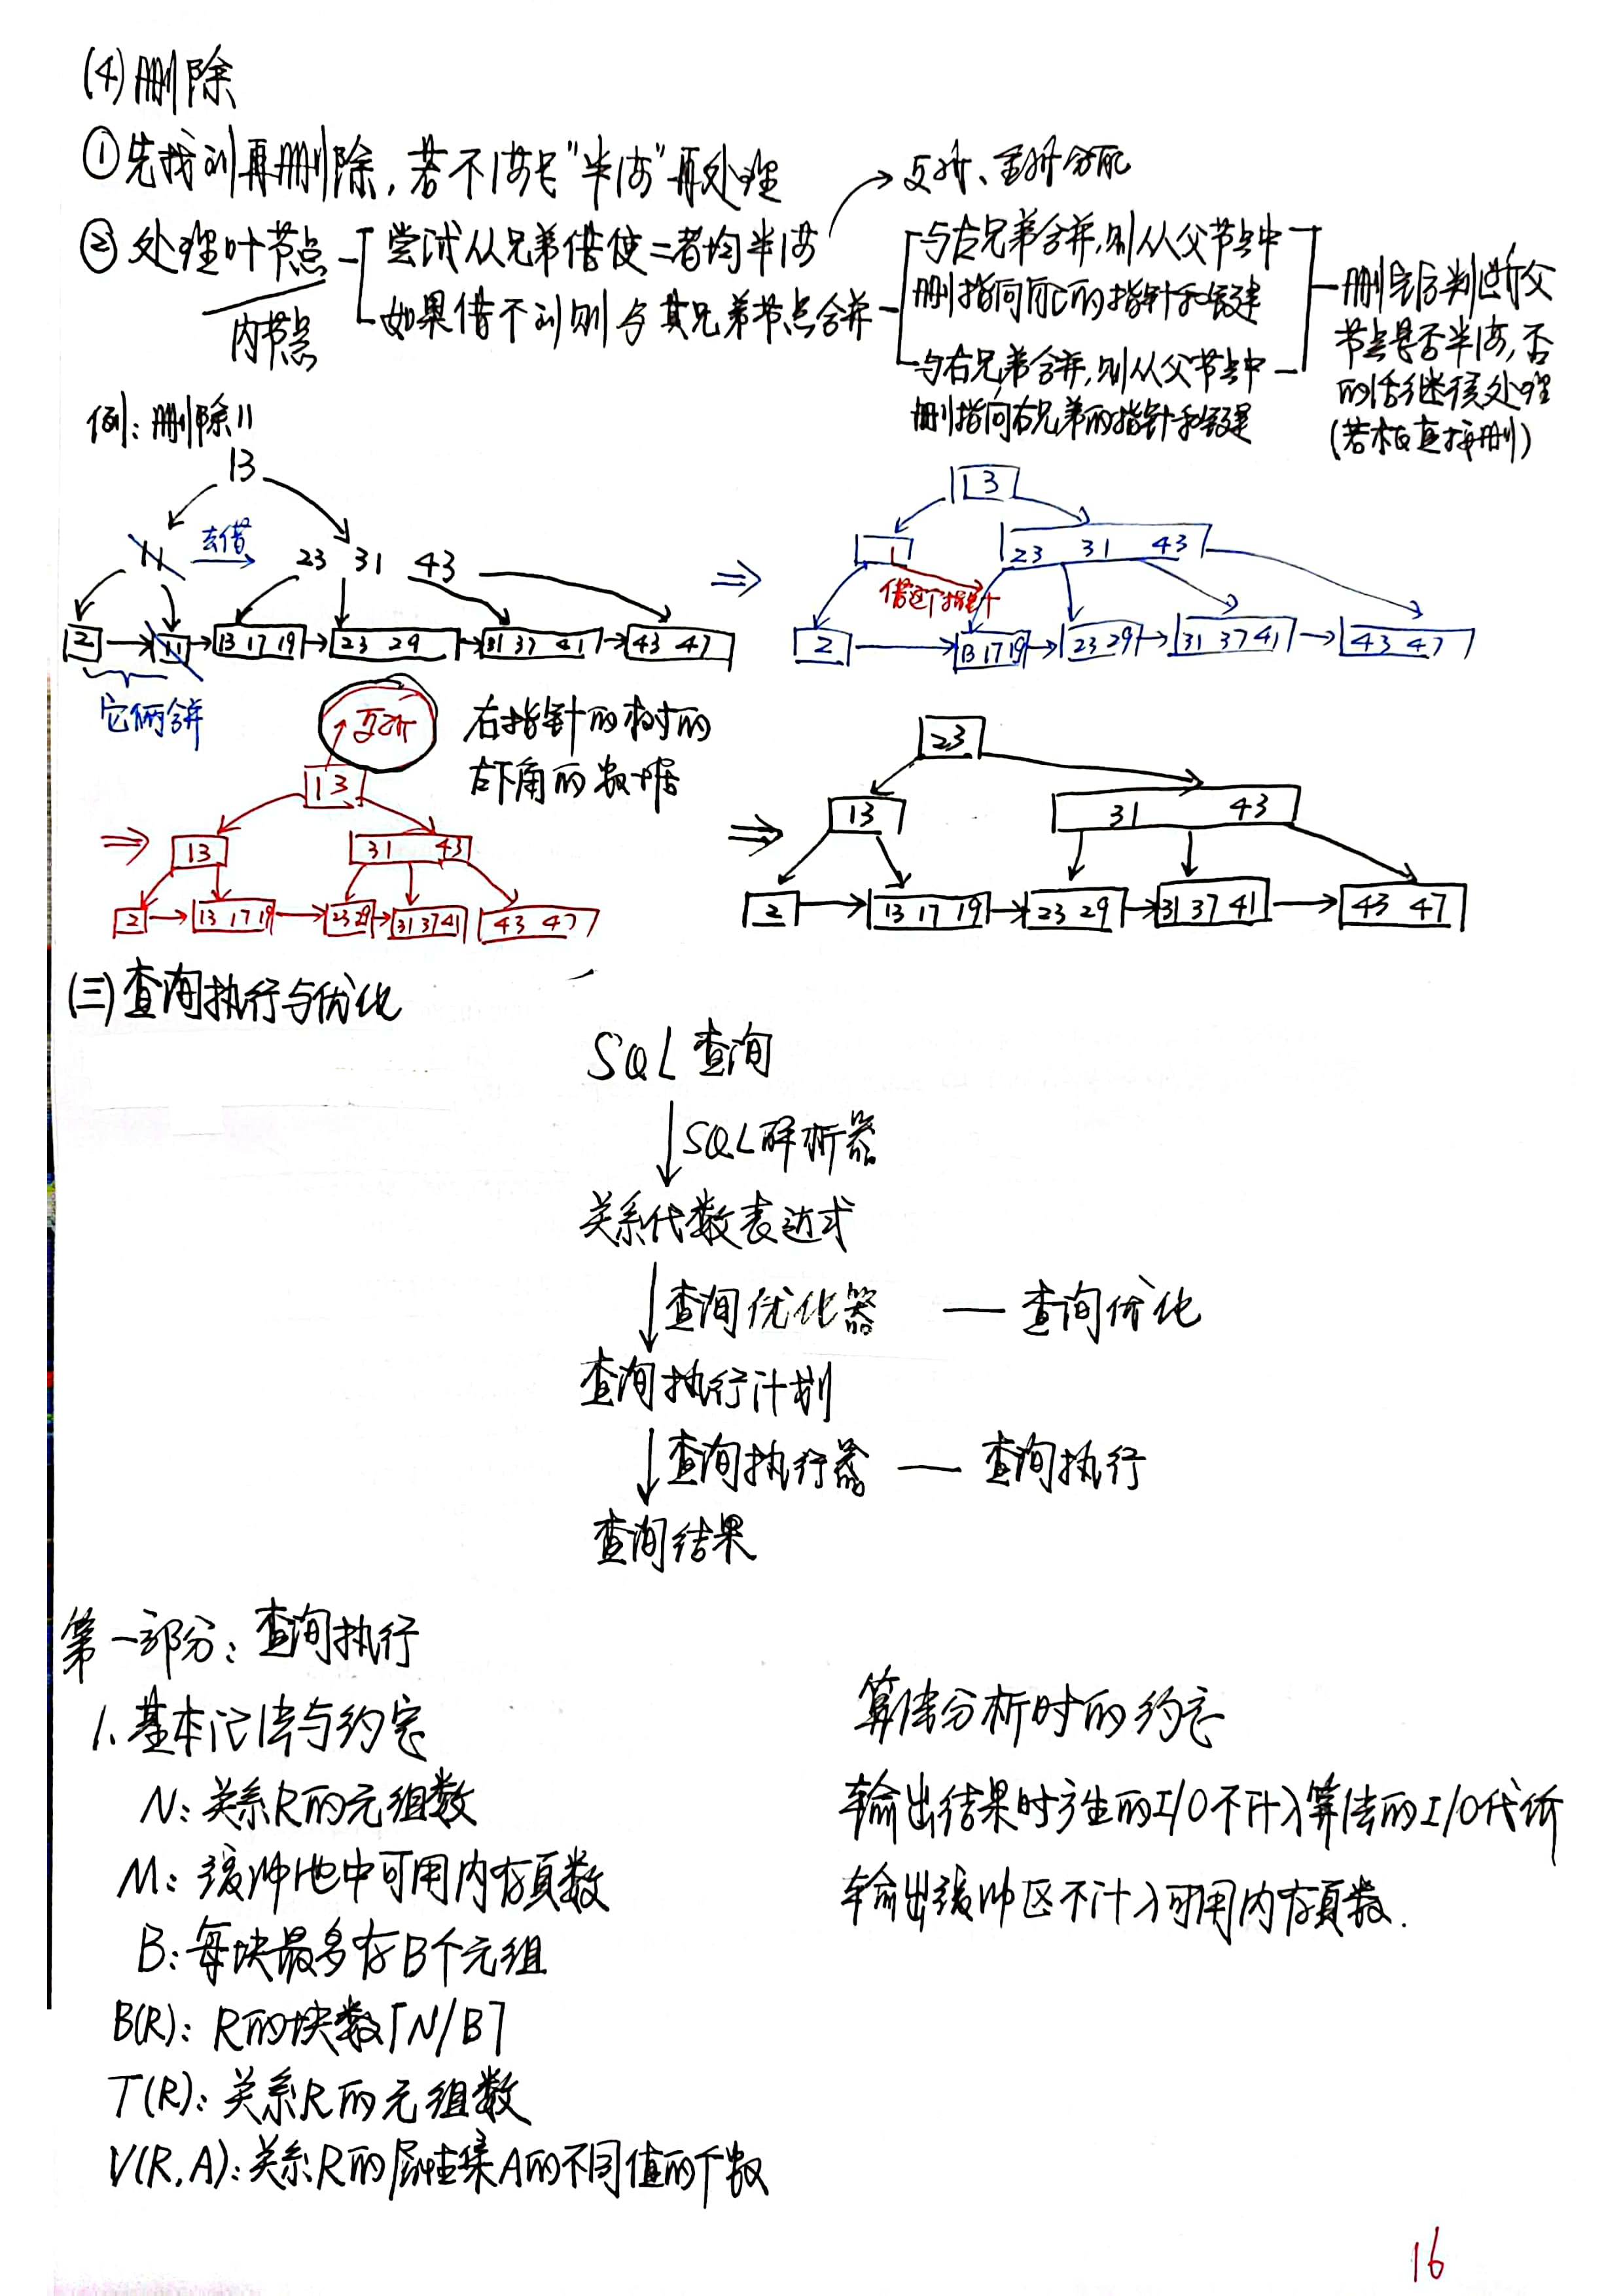 (4) 删除
①先找到再删除,若不满足"半满"再处理
更新、重新分配
② 处理叶节点
内节点
尝试从兄弟借使二者均半满
如果借不到则与其兄弟节点合并
与左兄弟合并,则从父节点中
删指向自己的指针和键
与右兄弟合并,则从父节点中
删指向右兄弟的指针和键
删完后判断父
节点是否半满,否
的话继续处理
(若根直接删)
例:删除11
13
11 去借 23 31 43
2 11 13 17 19 23 29 31 37 41 43 47
它俩合并
⇒
13
23 31 43
借这个指针
2 13 17 19 23 29 31 37 41 43 47
更新
右指针的树的
左下角的数据
⇒
13
13 31 43
2 13 17 19 23 29 31 37 41 43 47
⇒
23
13 31 43
2 13 17 19 23 29 31 37 41 43 47
(三)查询执行与优化
SQL 查询
↓ SQL解析器
关系代数表达式
↓ 查询优化器 — 查询优化
查询执行计划
↓ 查询执行器 — 查询执行
查询结果
第一部分:查询执行
1.基本记法与约定
N:关系R的元组数
M:缓冲池中可用内存页数
B:每块最多存B个元组
B(R):R的块数⌈N/B⌉
T(R):关系R的元组数
V(R,A):关系R的属性集A的不同值的个数
算法分析时的约定
输出结果时产生的I/O不计入算法的I/O代价
输出缓冲区不计入可用内存页数.
16